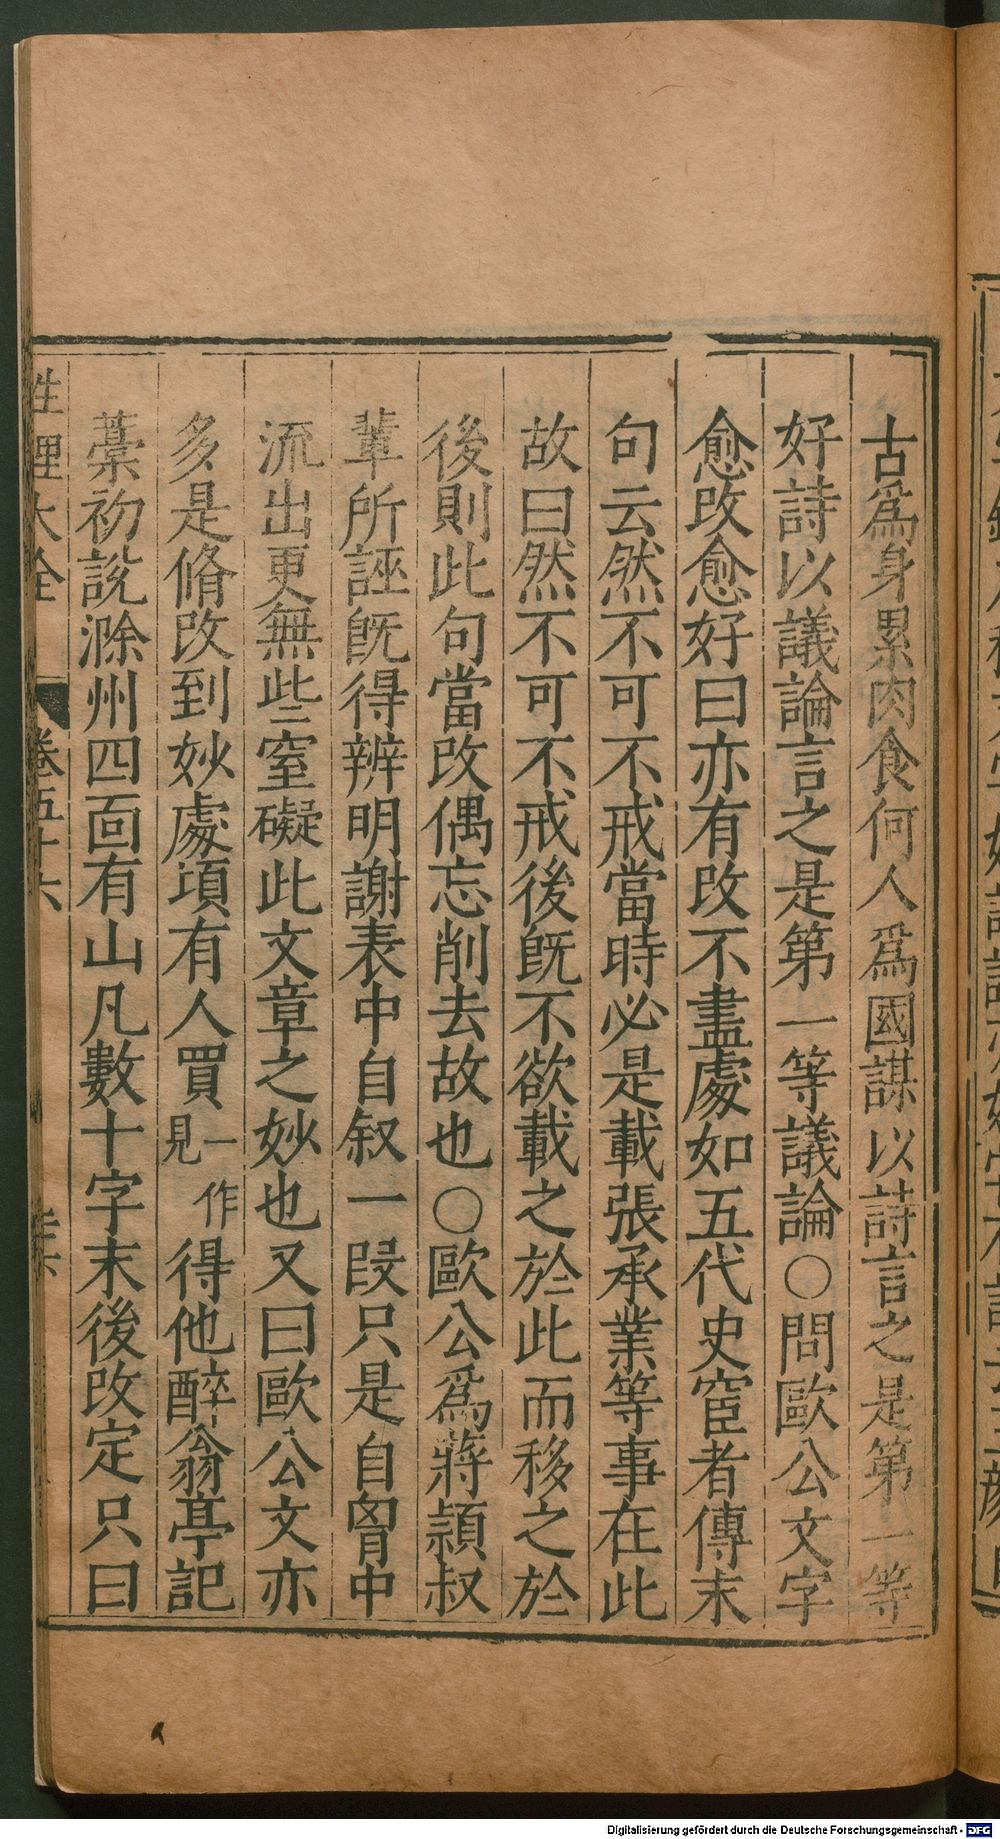 古爲身累肉食何人爲國謀以詩言之是第一等
好詩以議論言之是第一等議論○問歐公文字
愈改愈好曰亦有改不盡處如五代史宦者傳末
句云然不可不戒當時必是載張承業等事在此
故曰然不可不戒後旣不欲載之於此而移之於
後則此句當改偶忘削去故也○歐公爲蔣頴叔
輩所誣旣得辨明謝表中自叙一段只是自胷中
流出更無些窒礙此文章之妙也又曰歐公文亦
多是脩改到妙處項有人買一作見得他醉翁亭記
藁初說滁州四面有山凡數十字末後改定只曰
性理大全 卷五十六
Digitalisierung gefördert durch die Deutsche Forschungsgemeinschaft - DFG